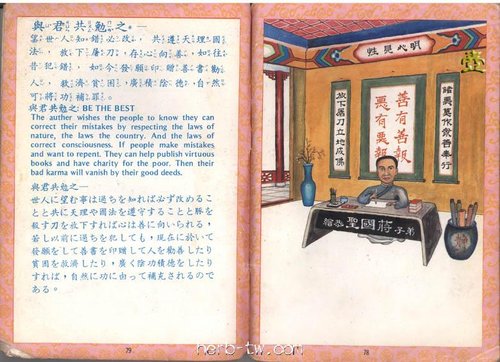 與君共勉之。—
望世人知錯必改，共遵天理國
法，放下屠刀，存心向善，如往
昔犯錯，如今發願印贈善書勸
人，救濟貧困，廣積陰德，自然
可將功補罪。
與君共勉之: BE THE BEST
The auther wishes the people to know they can
correct their mistakes by respecting the laws of
nature, the laws the country. And the laws of
correct consciousness. If people make mistakes
and want to repent. They can help publish virtuous
books and have charity for the poor. Then their
bad karma will vanish by their good deeds.
與君共勉之—
世人に望む事は過ちを知れば必ず改めるこ
とと共に天理や国法を遵守することと豚を
殺す刀を放下すれば心は善に向いられる、
若し以前に過ちを犯しても，現在に於いて
發願をして善書を印贈して人を勸善したり
貧困を救濟したり，廣く陰功積德をしたり
すれば，自然に功に由って補充されるので
ある。
79
明心見性
諸惡莫作眾善奉行
善有善報
惡有惡報
放下屠刀立地成佛
弟子蔣國聖恭繪
78
herb-tw.com